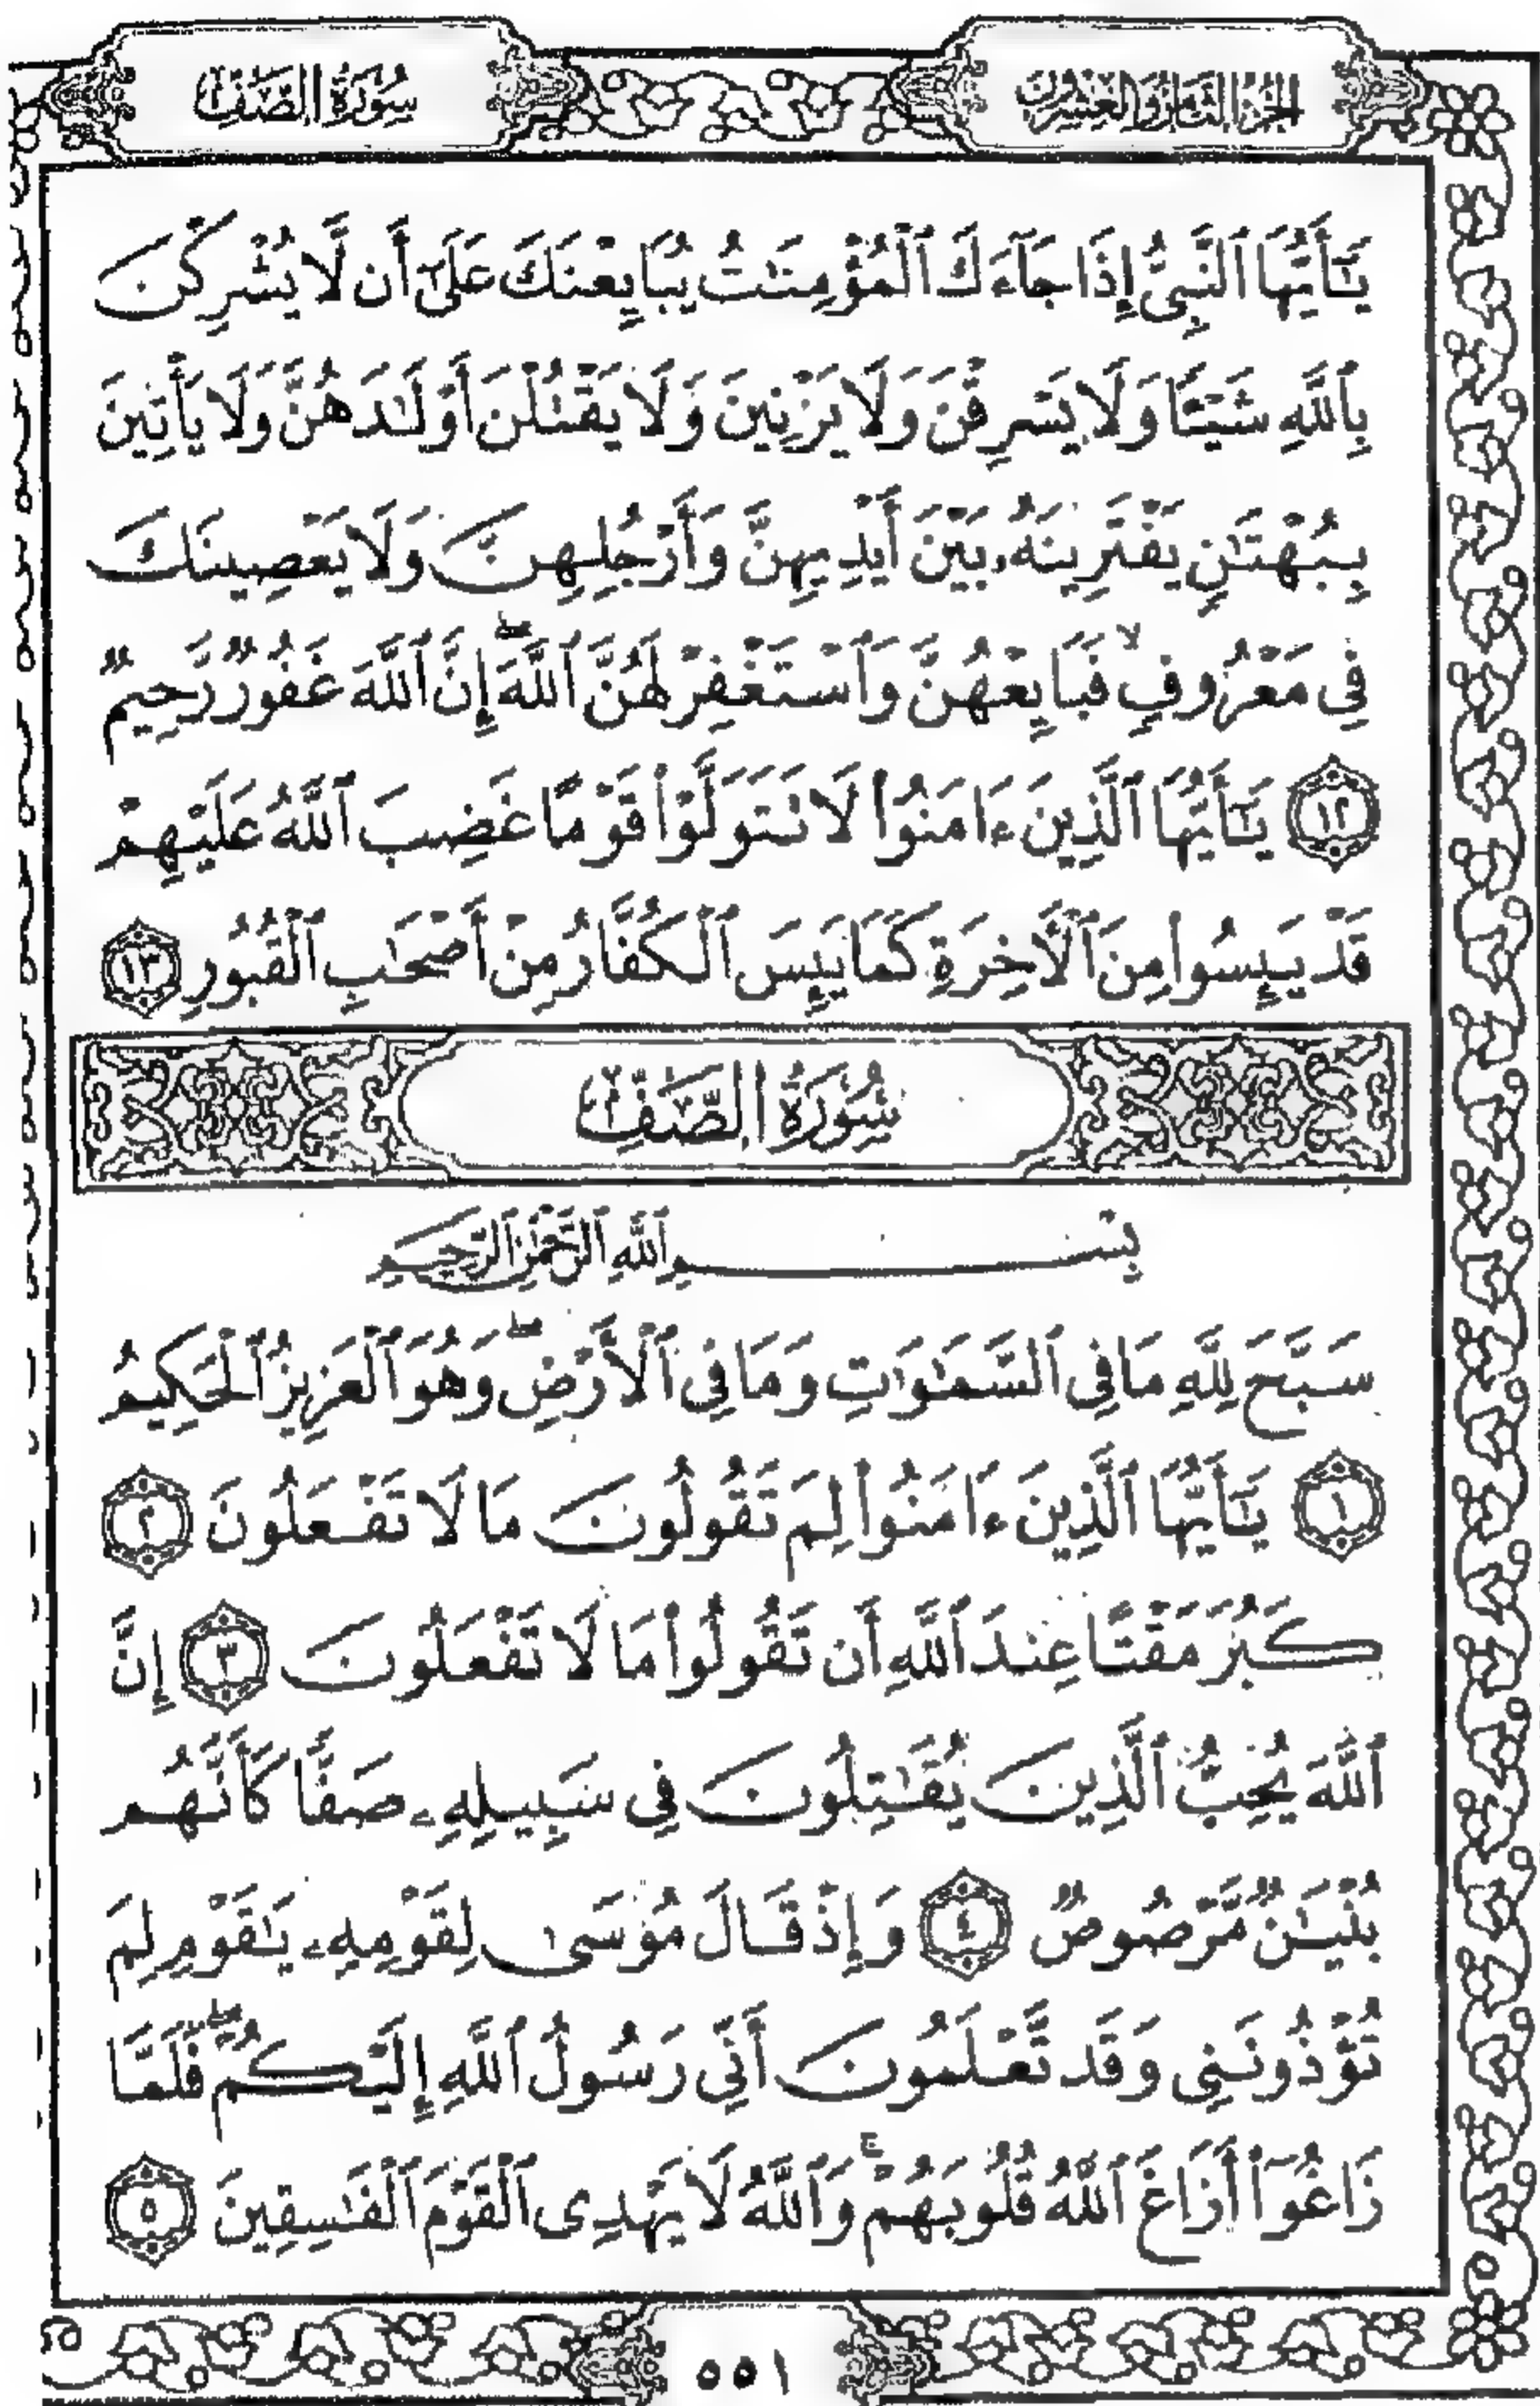 الجزء الثامن والعشرون
سورة الصف
يَٰٓأَيُّهَا ٱلنَّبِىُّ إِذَا جَآءَكَ ٱلْمُؤْمِنَٰتُ يُبَايِعْنَكَ عَلَىٰٓ أَن لَّا يُشْرِكْنَ
بِٱللَّهِ شَيْـًٔا وَلَا يَسْرِقْنَ وَلَا يَزْنِينَ وَلَا يَقْتُلْنَ أَوْلَٰدَهُنَّ وَلَا يَأْتِينَ
بِبُهْتَٰنٍ يَفْتَرِينَهُۥ بَيْنَ أَيْدِيهِنَّ وَأَرْجُلِهِنَّ وَلَا يَعْصِينَكَ
فِى مَعْرُوفٍۙ فَبَايِعْهُنَّ وَٱسْتَغْفِرْ لَهُنَّ ٱللَّهَۖ إِنَّ ٱللَّهَ غَفُورٌ رَّحِيمٌ
١٢ يَٰٓأَيُّهَا ٱلَّذِينَ ءَامَنُوا۟ لَا تَتَوَلَّوْا۟ قَوْمًا غَضِبَ ٱللَّهُ عَلَيْهِمْ
قَدْ يَئِسُوا۟ مِنَ ٱلْـَٔاخِرَةِ كَمَا يَئِسَ ٱلْكُفَّارُ مِنْ أَصْحَٰبِ ٱلْقُبُورِ ١٣
سُورَةُ الصَّفِّ
بِسْمِ ٱللَّهِ ٱلرَّحْمَٰنِ ٱلرَّحِيمِ
سَبَّحَ لِلَّهِ مَا فِى ٱلسَّمَٰوَٰتِ وَمَا فِى ٱلْأَرْضِۖ وَهُوَ ٱلْعَزِيزُ ٱلْحَكِيمُ
١ يَٰٓأَيُّهَا ٱلَّذِينَ ءَامَنُوا۟ لِمَ تَقُولُونَ مَا لَا تَفْعَلُونَ ٢
كَبُرَ مَقْتًا عِندَ ٱللَّهِ أَن تَقُولُوا۟ مَا لَا تَفْعَلُونَ ٣ إِنَّ
ٱللَّهَ يُحِبُّ ٱلَّذِينَ يُقَٰتِلُونَ فِى سَبِيلِهِۦ صَفًّا كَأَنَّهُم
بُنْيَٰنٌ مَّرْصُوصٌ ٤ وَإِذْ قَالَ مُوسَىٰ لِقَوْمِهِۦ يَٰقَوْمِ لِمَ
تُؤْذُونَنِى وَقَد تَّعْلَمُونَ أَنِّى رَسُولُ ٱللَّهِ إِلَيْكُمْۖ فَلَمَّا
زَاغُوٓا۟ أَزَاغَ ٱللَّهُ قُلُوبَهُمْۚ وَٱللَّهُ لَا يَهْدِى ٱلْقَوْمَ ٱلْفَٰسِقِينَ ٥
٥٥١